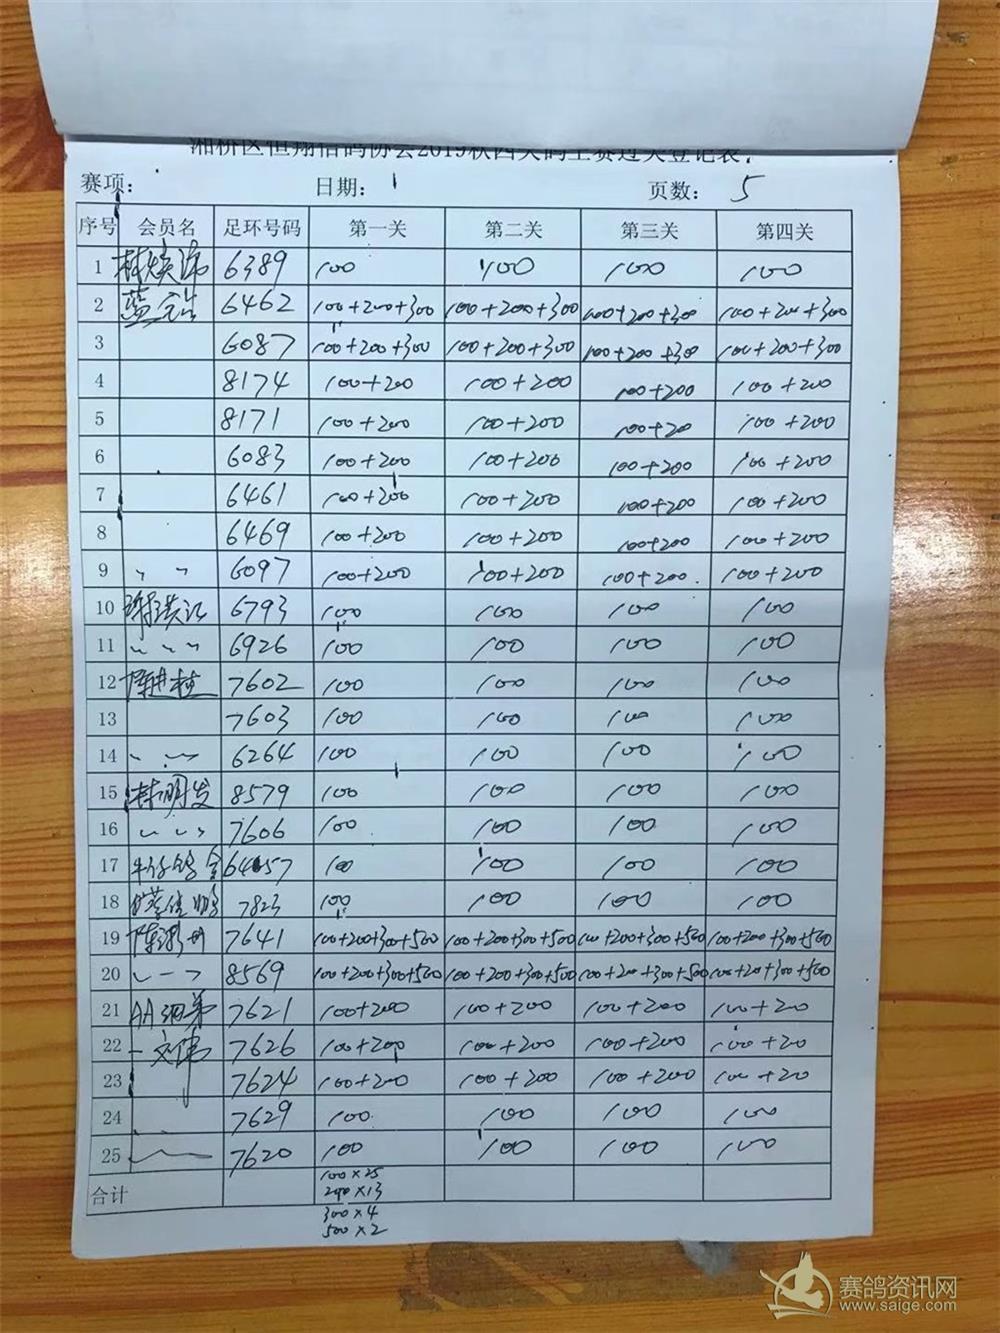 湘桥区恒翔信鸽协会2019秋四关鸽王赛过关登记表
赛项: 日期: 1 页数: 5
序号 会员名 足环号码 第一关 第二关 第三关 第四关
1 6389 100 100 100 100
2 6462 100+200+300 100+200+300 100+200+300 100+200+300
3 6087 100+200+300 100+200+300 100+200+300 100+200+300
4 8174 100+200 100+200 100+200 100+200
5 8171 100+200 100+200 100+20 100+200
6 6083 100+200 100+200 100+200 100+200
7 6461 100+200 100+200 100+200 100+200
8 6469 100+200 100+200 100+200 100+200
9 6097 100+200 100+200 100+200. 100+200
10 6793 100 100 100 100
11 6926 100 100 100 100
12 7602 100 100 100 100
13 7603 100 100 100 100
14 6264 100 100 100 100
15 林明发 8579 100 100 100 100
16 7606 100 100 100 100
17 64057 100 100 100 100
18 7823 100 100 100 100
19 7641 100+200+300+500 100+200+300+500 100+200+300+500 100+200+300+500
20 8569 100+200+300+500 100+200+300+500 100+200+300+500 100+20+300+500
21 7621 100+200 100+200 100+200 100+20
22 文伟 7626 100+200 100+200 100+200 100+20
23 7624 100+200 100+200 100+200 100+20
24 7629 100 100 100 100
25 7620 100 100 100 100
合计 100×25
200×13
300×4
500×2
赛鸽资讯网
www.saige.com